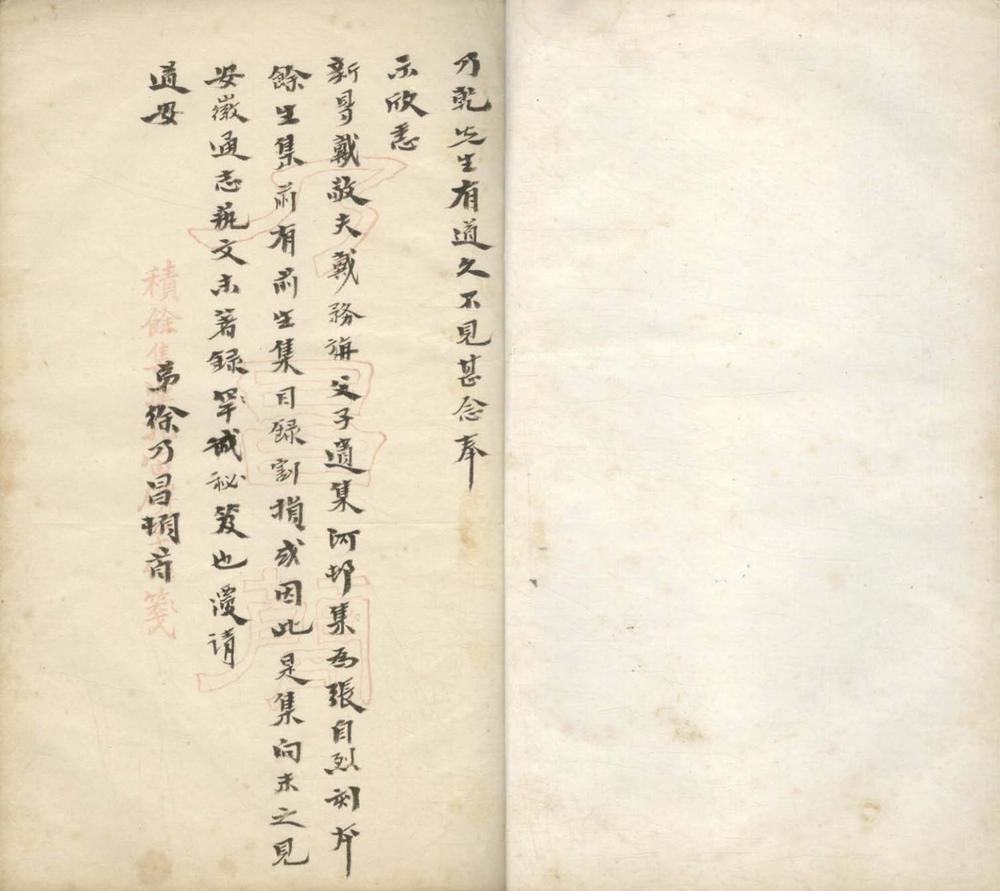 乃乾先生有道久不見甚念奉
示欣悉
新得戴敬夫戴務旃父子遺集河邨集為張自烈刻本
餘生集前有前生集目錄割損或因此是集向未之見
安徽通志藝文未著錄罕誠秘笈也復請
道安
弟徐乃昌頓首
積餘集
箋